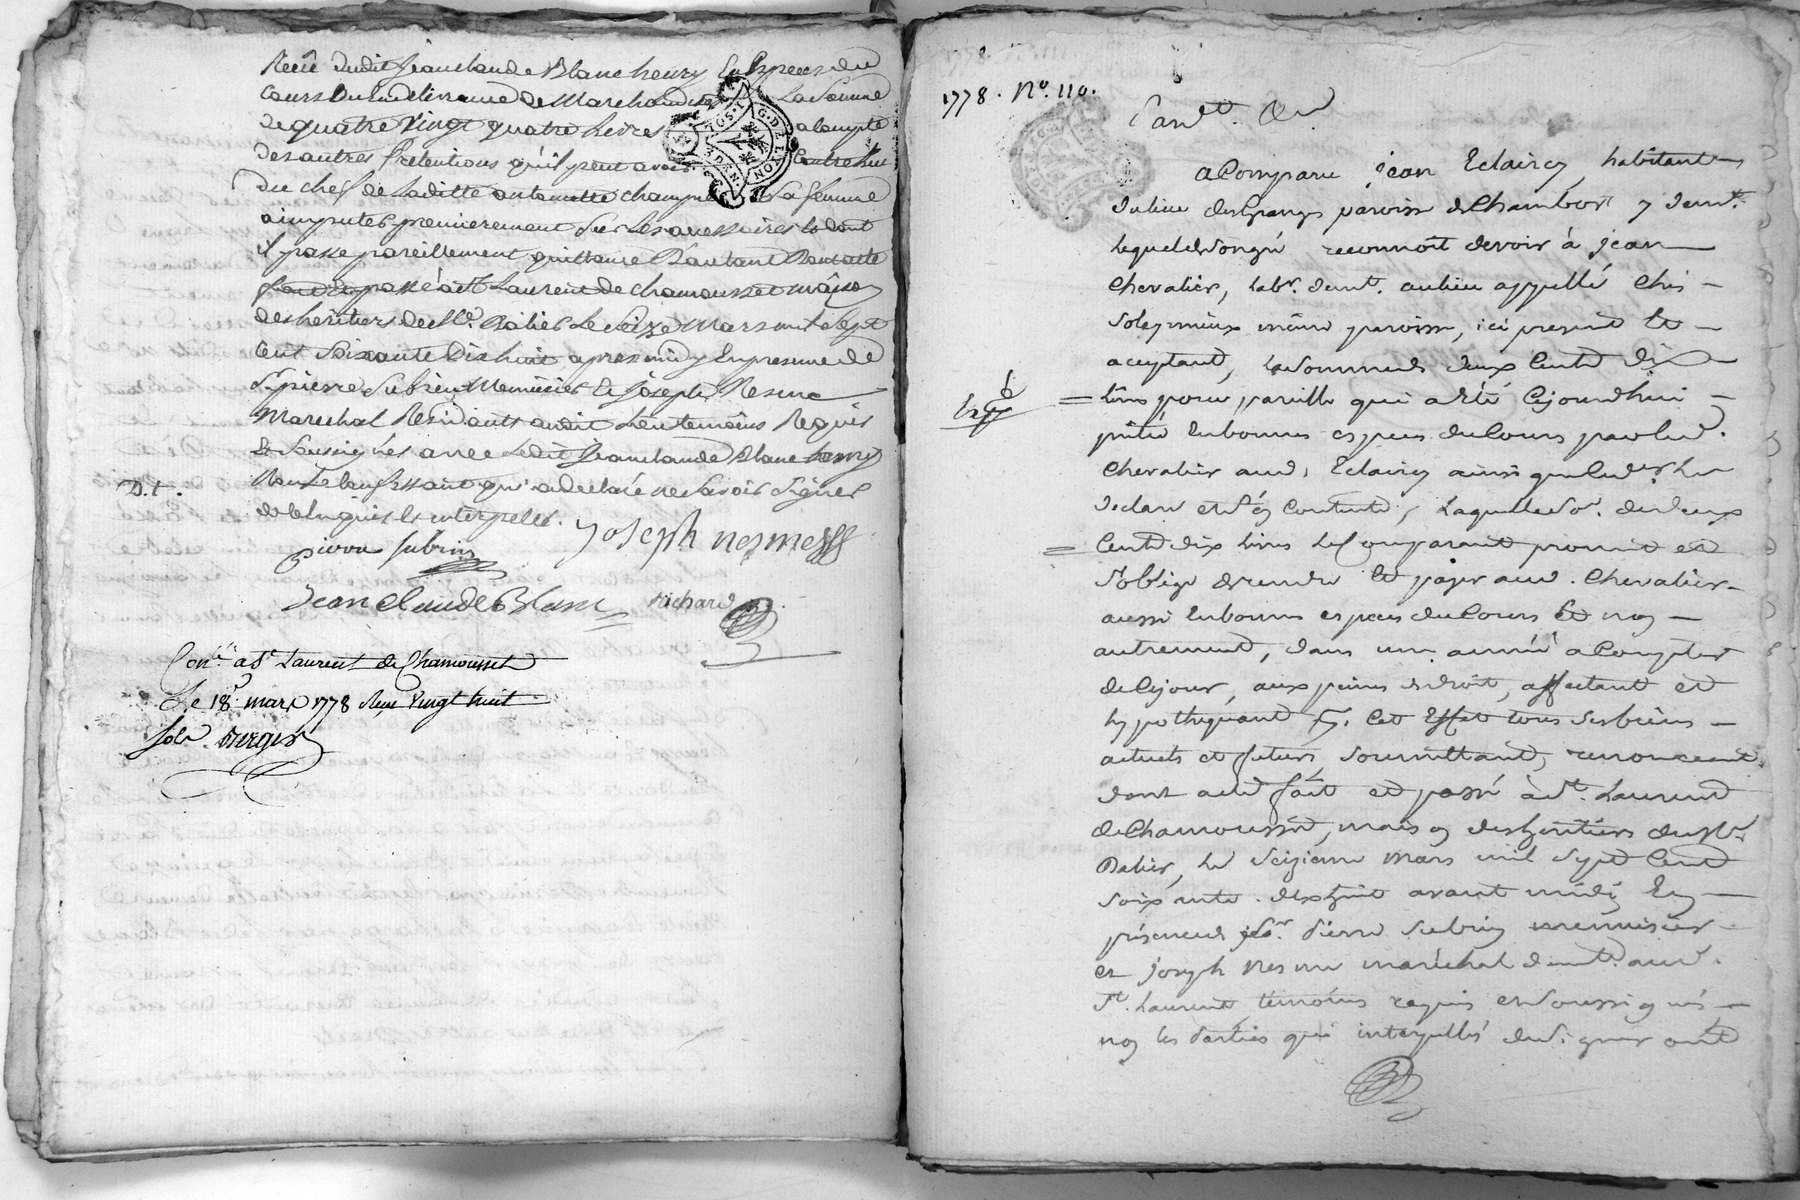 Reçu dudit Jean claude Blanc heury En Especes du
Cours Ou en delivrance de Marchandise La Somme
de quatre Vingt quatre Livres a Compte
des autres Pretentions qu'il peut avoir Contre lui
Du chef de Laditte antoinette champ Sa femme
a imputer premierement Sur Les accessoires Et dont
il passe pareillement quittance
fait Et passé à St Laurent de chamousset maison
des heritiers de Me. Ratier Le Seize Mars mil Sept
Cent Soixante Dix huit apres midy En presence de
Sr pierre Subrin Menuisier Et joseph Nesme
Marechal Residants audit Lieu temoins Requis
Et Soussignés avec Ledit Jean claude Blanc
Non Le qui a declaré ne Savoir Signer
de Enquis Et interpellés.
D. t.
pierre subrin joseph nesme
Jean Claude Blanc richard
Con.lé a St Laurent de Chamousset
Le 18e mars 1778 Reçu Vingt huit
sols.
G. D. LYON
1778. No. 110.
Pardt.
a Comparu jean Eclaircy, habitant
du lieu des granges paroisse de Chambost y demt.
lequel de son gré reconnoit devoir à jean
Chevalier, labr. demt. au lieu appellé Chis
soleymieux même paroisse, ici present et
aceptant, la somme de deux Cents dix
Livres pour pareille qui a Eté Cejourdhui
prêtée En bonnes especes du Cours par led.
Chevalier aud. Eclaircy ainsi que ce dernier le
declare et s'en Contente, laquelle so. de deux
Cents dix Livres le Comparant promet et
s'oblige de rendre Et payer aud. Chevalier
aussi En bonnes especes du Cours Et non
autrement, dans une année a Compter
de Cejour, aux peines de droit, affectant et
hypothequant Cet Effet tous ses biens
actuels et futurs, soumettant, renonceant.
dont acte fait et passé à St. Laurent
de Chamousset, maison des heritiers du Sr.
Ratier, le seizieme mars mil sept Cent
soixante dixhuit avant midi En
présence de sr. pierre subrin menuisier
et joseph Nesme maréchal demt. aud.
St. Laurent témoins requis et soussignés
non les parties qui interpellés de signer ont